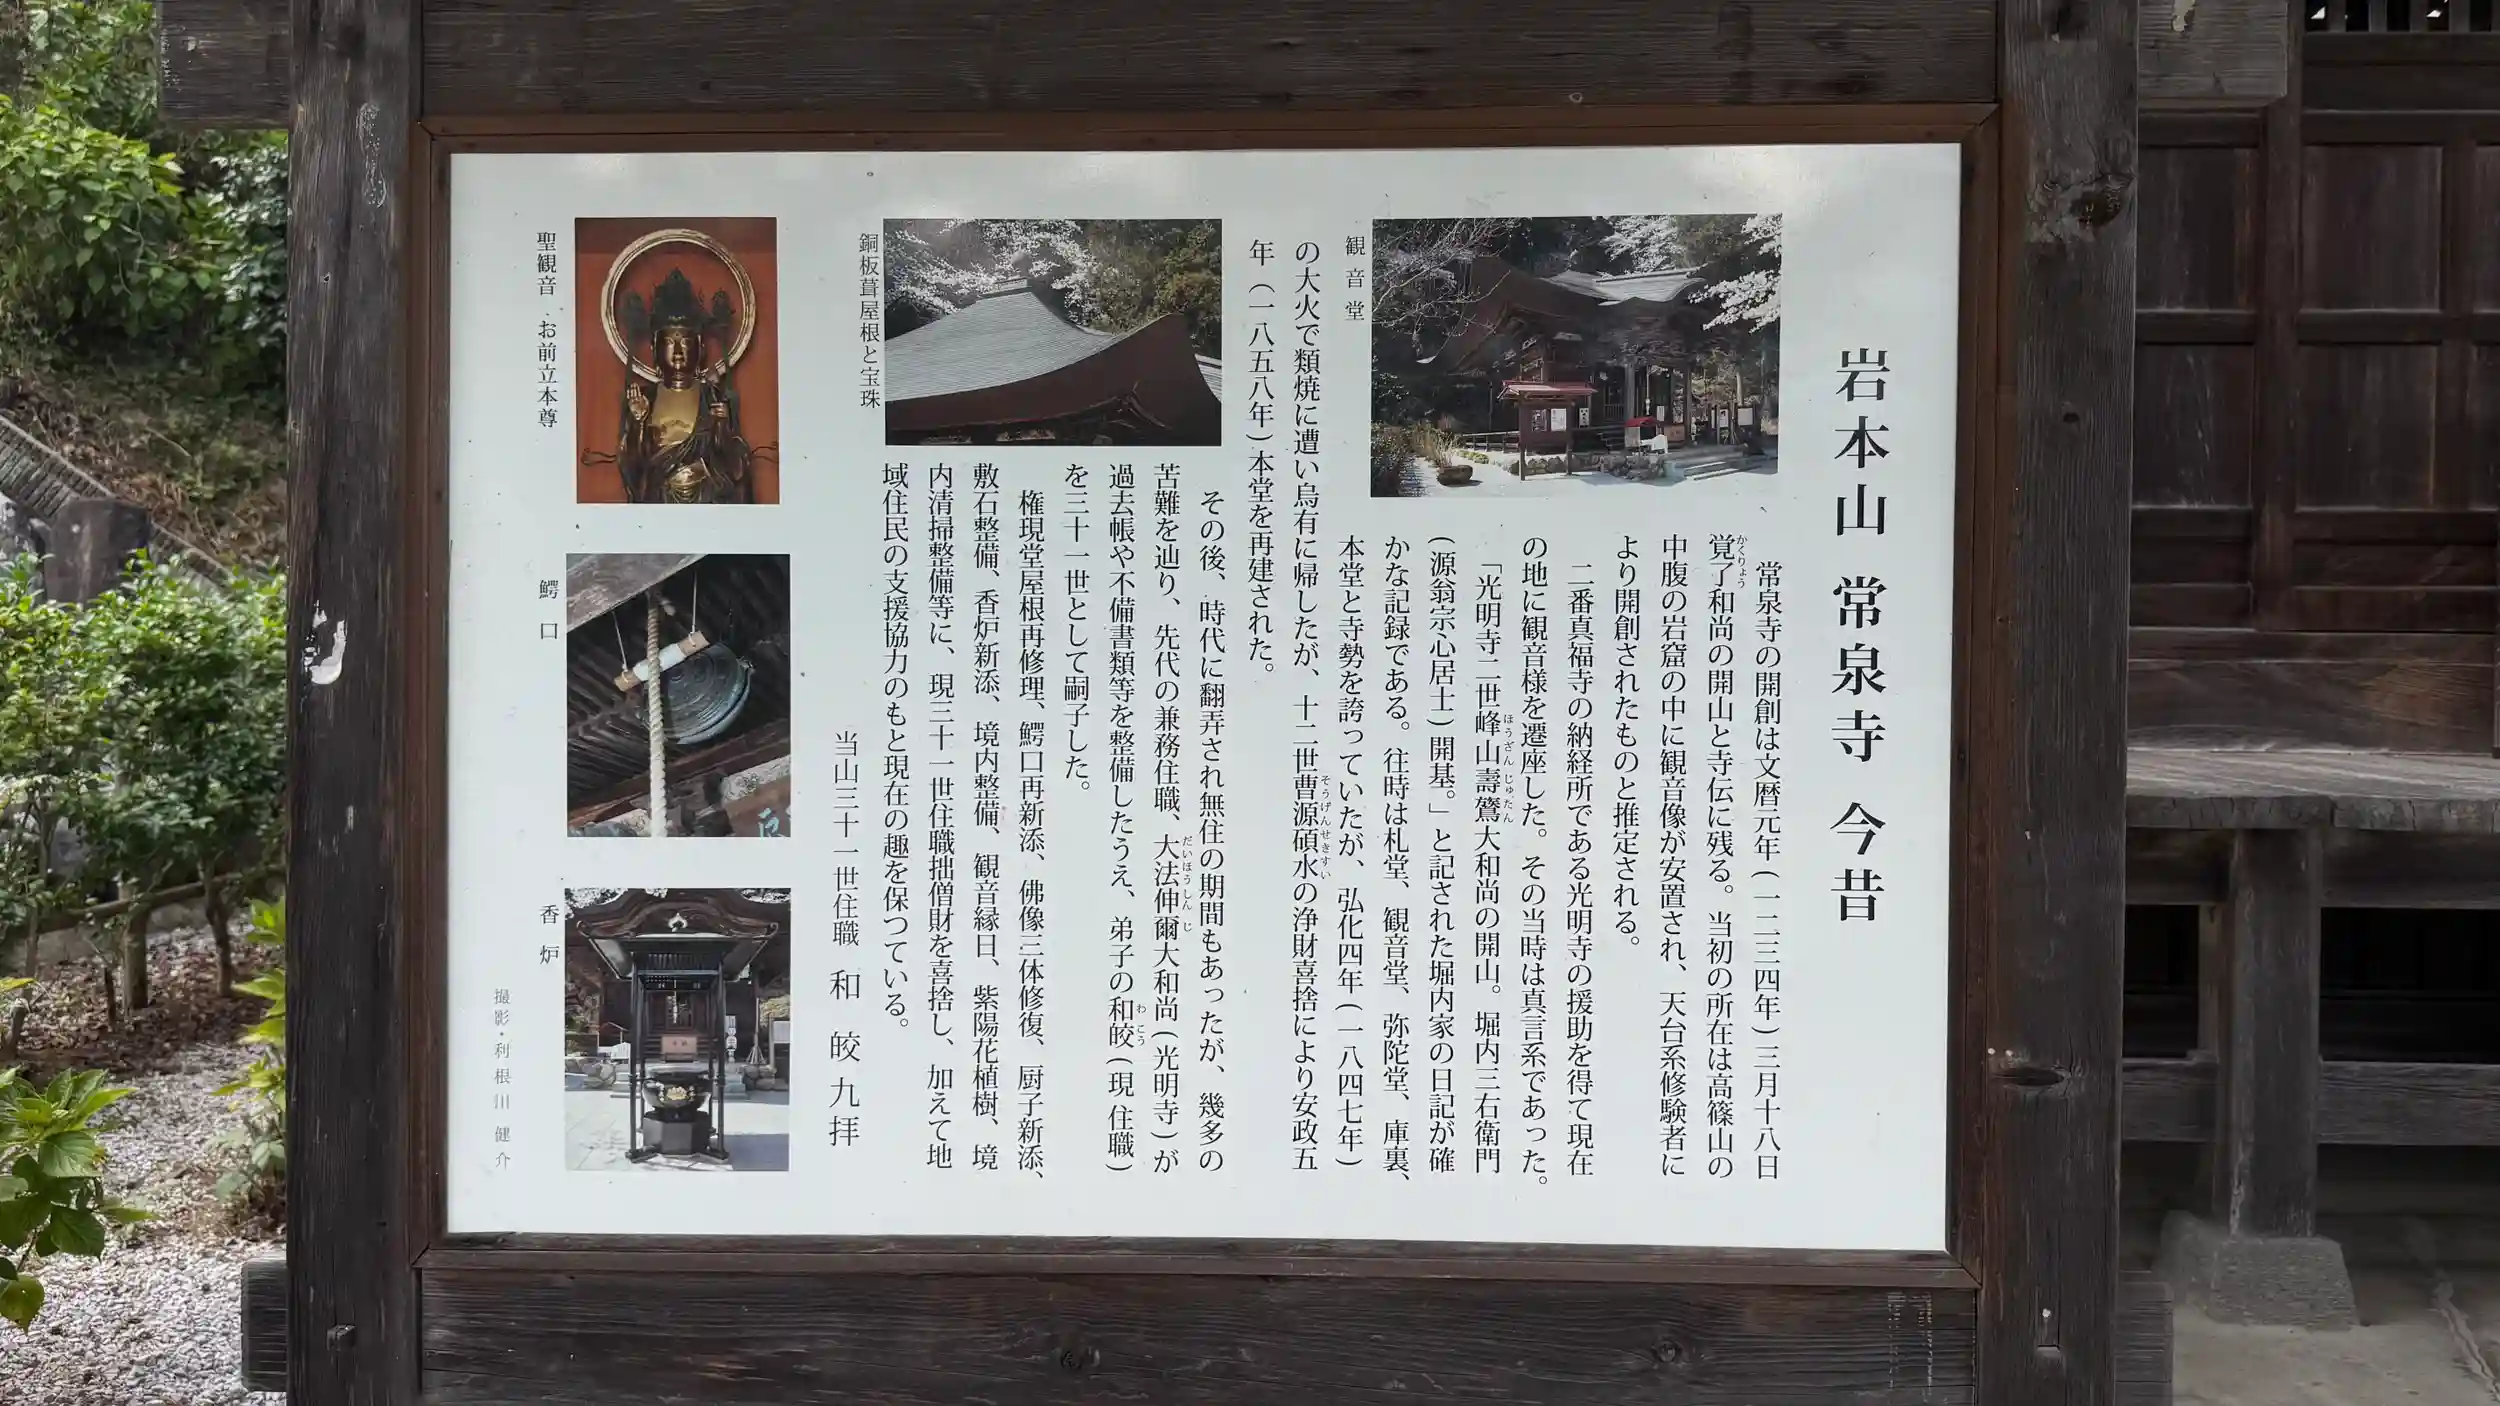 岩本山 常泉寺 今昔
常泉寺の開創は文暦元年(一二三四年)三月十八日
覚了和尚の開山と寺伝に残る。当初の所在は高篠山の
かくりょう
中腹の岩窟の中に観音像が安置され、天台系修験者に
より開創されたものと推定される。
二番真福寺の納経所である光明寺の援助を得て現在
の地に観音様を遷座した。その当時は真言系であった。
「光明寺二世峰山壽鶿大和尚の開山。堀内三右衛門
ほうざん じゅたん
(源翁宗心居士)開基。」と記された堀内家の日記が確
かな記録である。往時は札堂、観音堂、弥陀堂、庫裏、
本堂と寺勢を誇っていたが、弘化四年(一八四七年)
の大火で類焼に遭い烏有に帰したが、十二世曹源碩水の浄財喜捨により安政五
そうげんせきすい
年(一八五八年)本堂を再建された。
その後、時代に翻弄され無住の期間もあったが、幾多の
苦難を辿り、先代の兼務住職、大法伸爾大和尚(光明寺)が
だいほうしんじ
過去帳や不備書類等を整備したうえ、弟子の和皎(現住職)
わこう
を三十一世として嗣子した。
権現堂屋根再修理、鰐口再新添、佛像三体修復、厨子新添、
敷石整備、香炉新添、境内整備、観音縁日、紫陽花植樹、境
内清掃整備等に、現三十一世住職拙僧財を喜捨し、加えて地
域住民の支援協力のもと現在の趣を保つている。
当山三十一世住職 和皎九拝
観音堂
銅板葺屋根と宝珠
聖観音 お前立本尊
鰐口
香炉
撮影・利根川健介